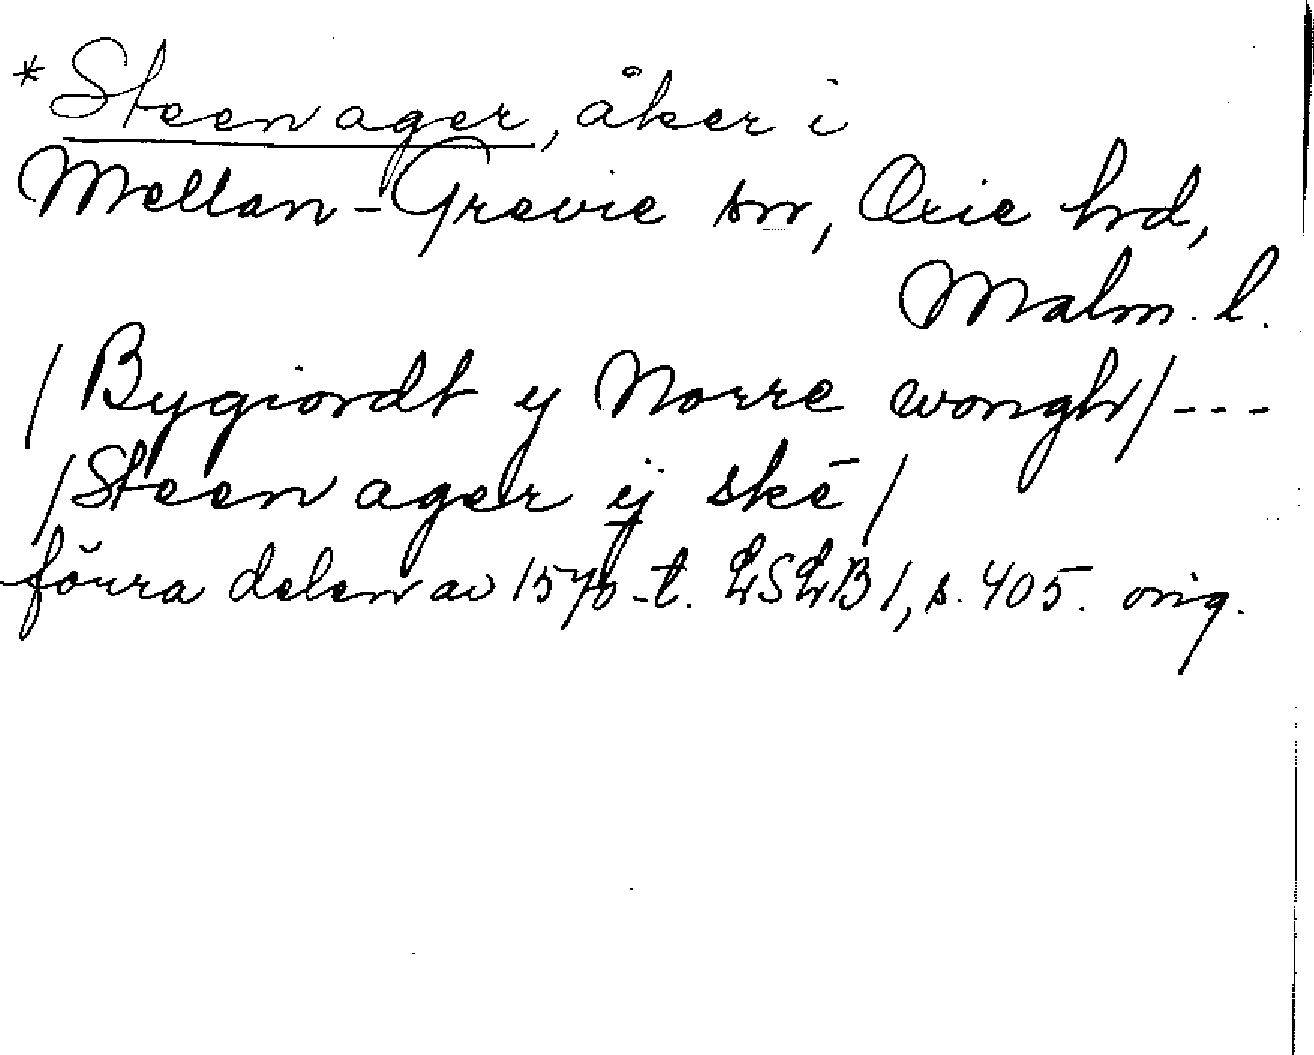 * Steen ager, åker i
Mellan-Grevie sn, Oxie hd,
Malm. l.
/Bygiordt y Norre wongh/ ---
/Steen ager ij skē/
förra delen av 1570-t. LSLB 1, s. 405. orig.